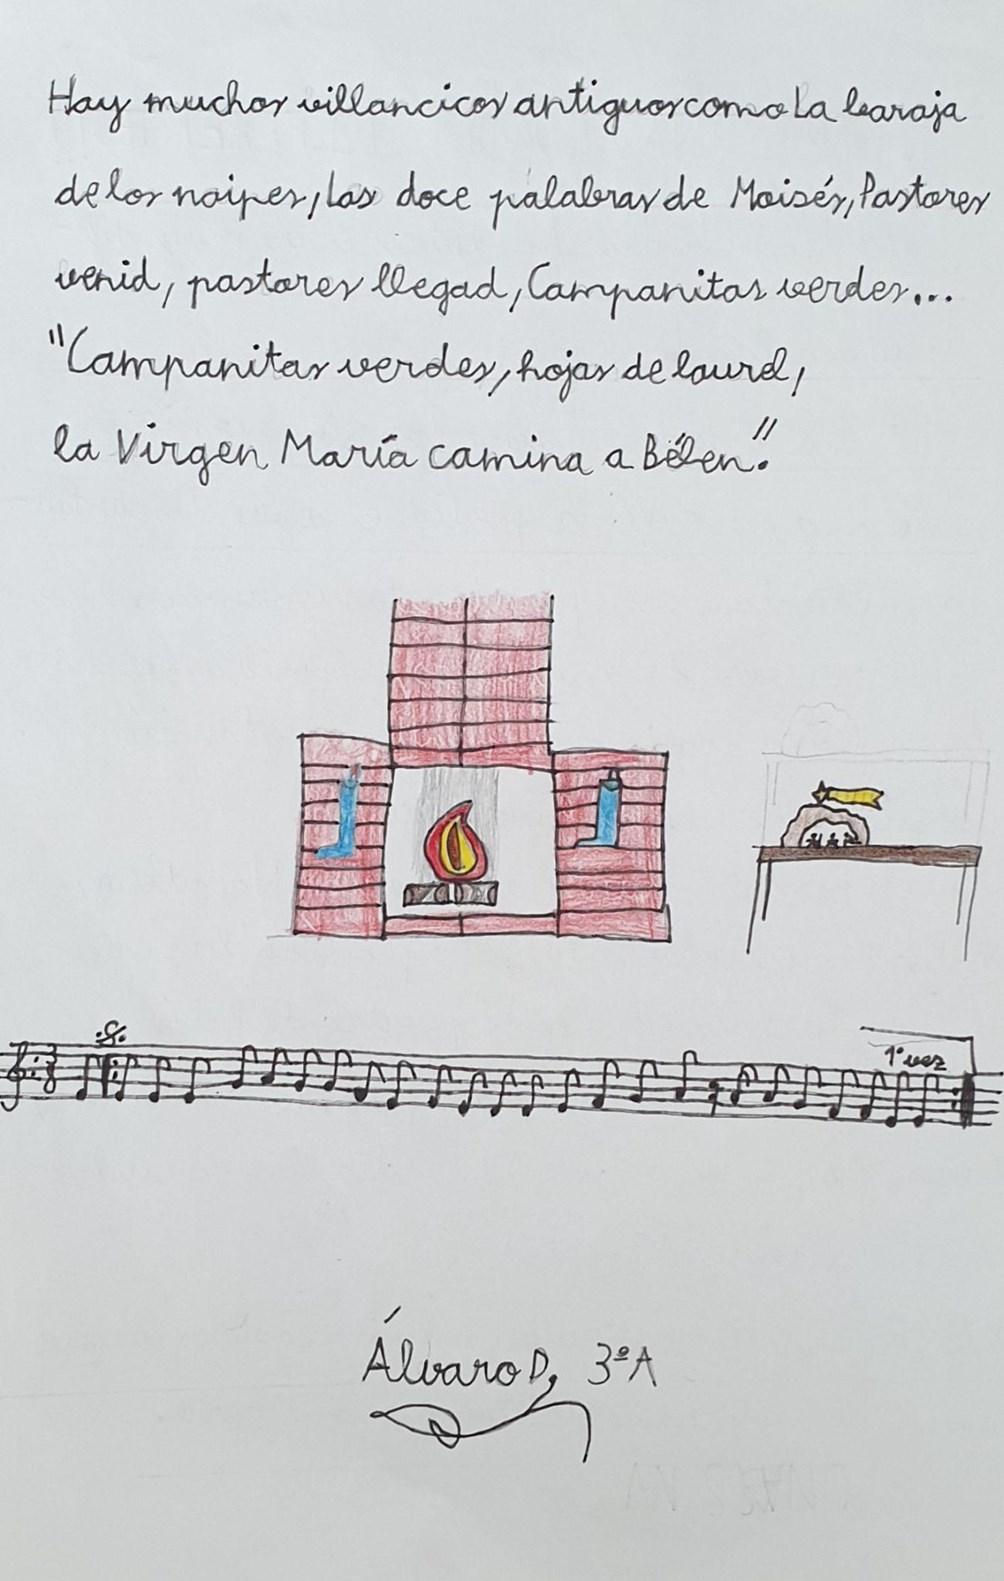 Hay muchos villancicos antiguos como La baraja
de los naipes, Las doce palabras de Moisés, Pastores
venid, pastores llegad, Campanitas verdes...
"Campanitas verdes, hojas de laurel,
la Virgen María camina a Bélen."
1ª vez
Álvaro D, 3ºA